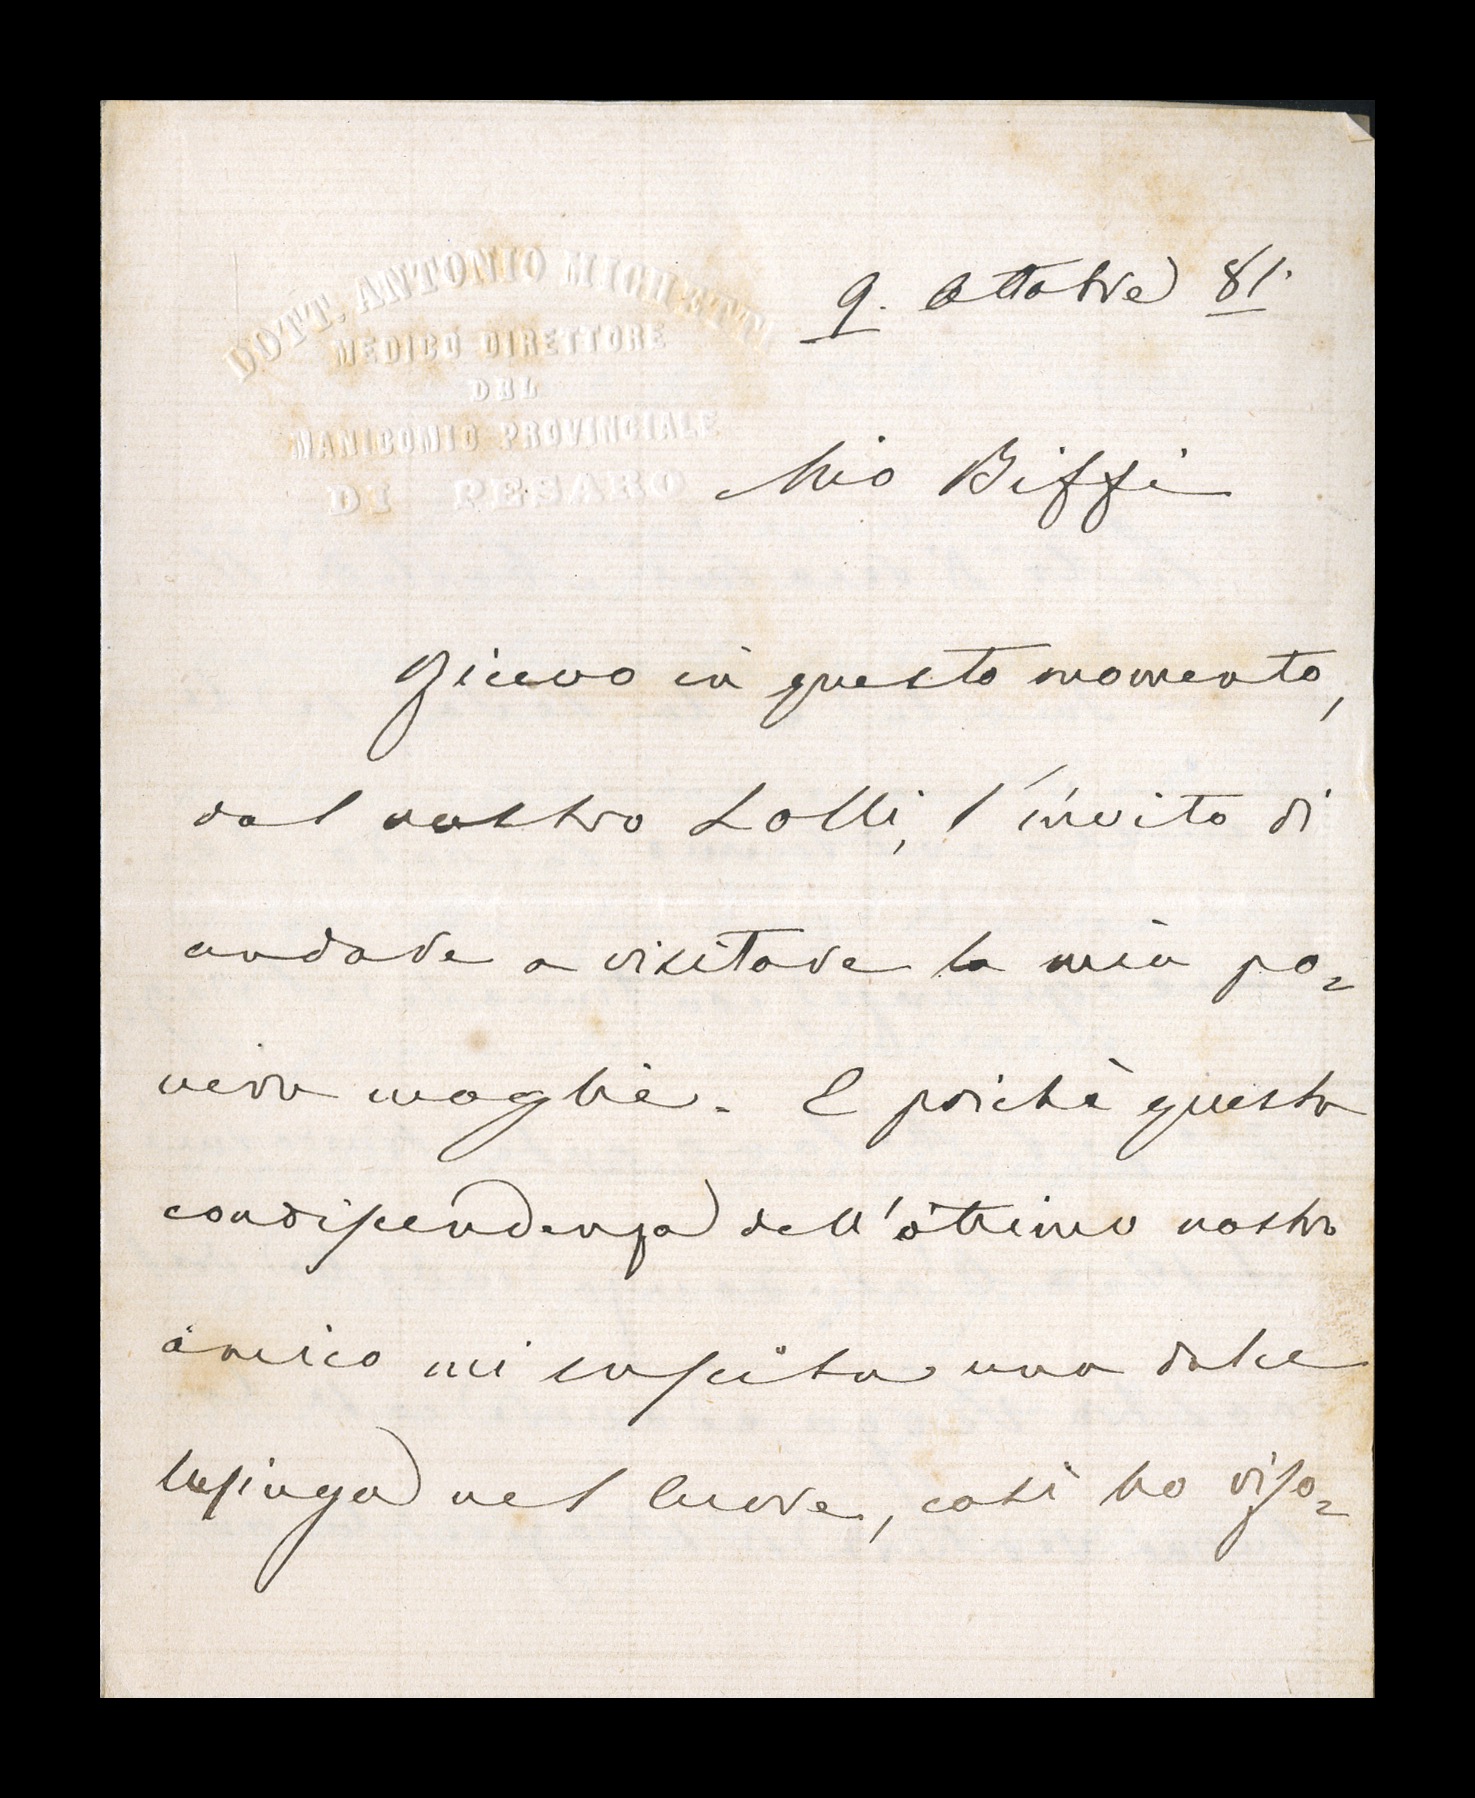 DOTT. ANTONIO MICHETTI
MEDICO DIRETTORE
DEL
MANICOMIO PROVINCIALE
DI PESARO
9. Ottobre 81.
Mio Biffi
Ricevo in questo momento,
dal nostro Lolli, l'invito di
andare a visitare la mia po=
vera moglie. E poichè questa
condiscendenza dell'ottimo nostro
amico mi suscita una dolce
lusinga nel cuore, così ho riso=